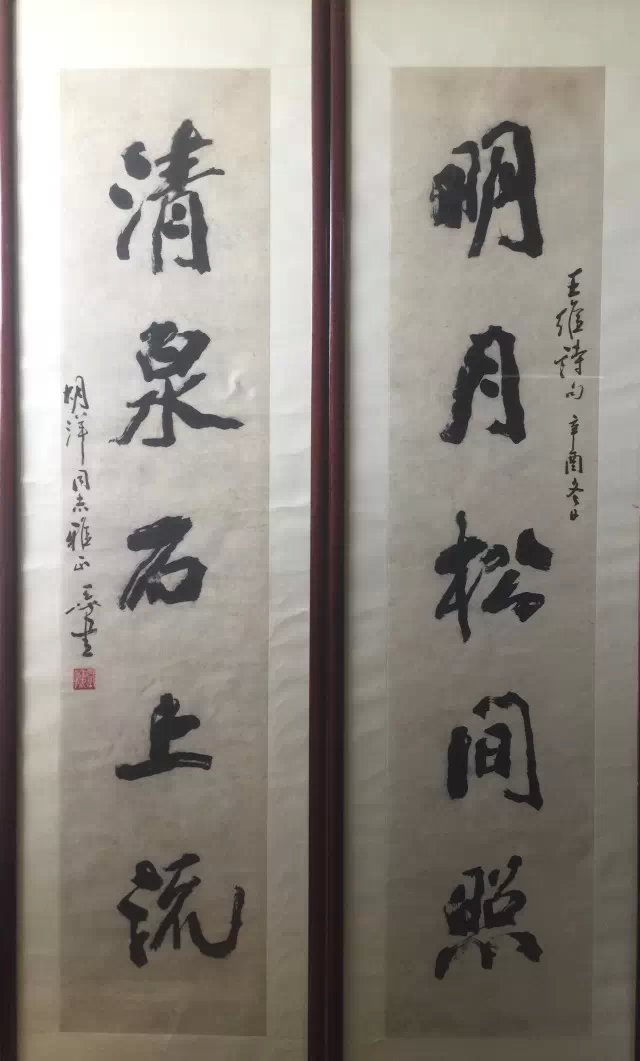 明月松間照
王維詩句 辛酉冬日
清泉石上流
胡洋同志雅正